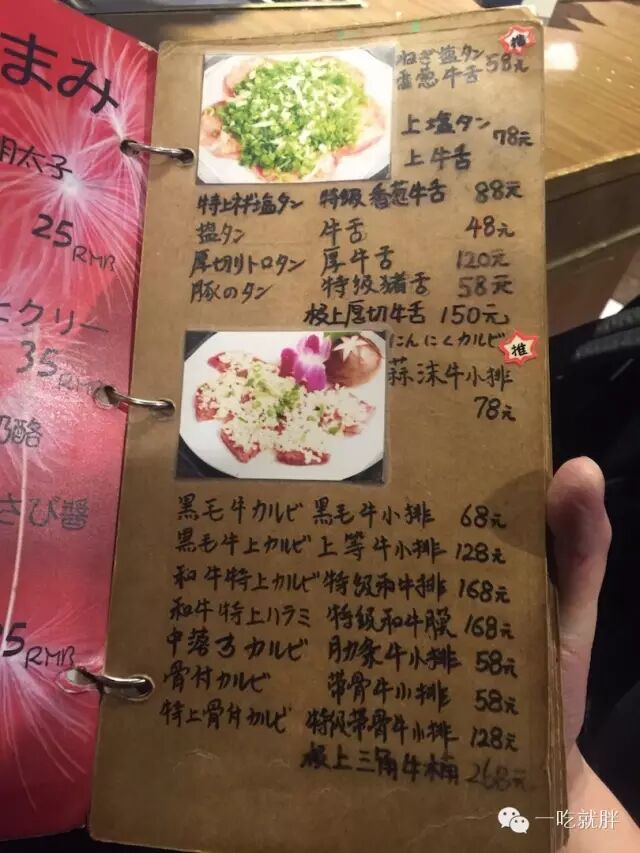 まみ
明太子
25 RMB
クリー
35 RMB
奶酪
さび醤
35 RMB
推
ねぎ塩タン
香葱牛舌 58元
上塩タン
上牛舌 78元
特上ネギ塩タン 特級香葱牛舌 88元
塩タン 牛舌 48元
厚切りトロタン 厚牛舌 120元
豚のタン 特級猪舌 58元
极上厚切牛舌 150元
にんにくカルビ
推
蒜沫牛小排
78元
黒毛牛カルビ 黒毛牛小排 68元
黒毛牛上カルビ 上等牛小排 128元
和牛特上カルビ 特級和牛排 168元
和牛特上ハラミ 特級和牛膜 168元
中落ちカルビ 肋条牛小排 58元
骨付カルビ 带骨牛小排 58元
特上骨付カルビ 特级带骨牛小排 128元
极上三角牛楠 268元
一吃就胖